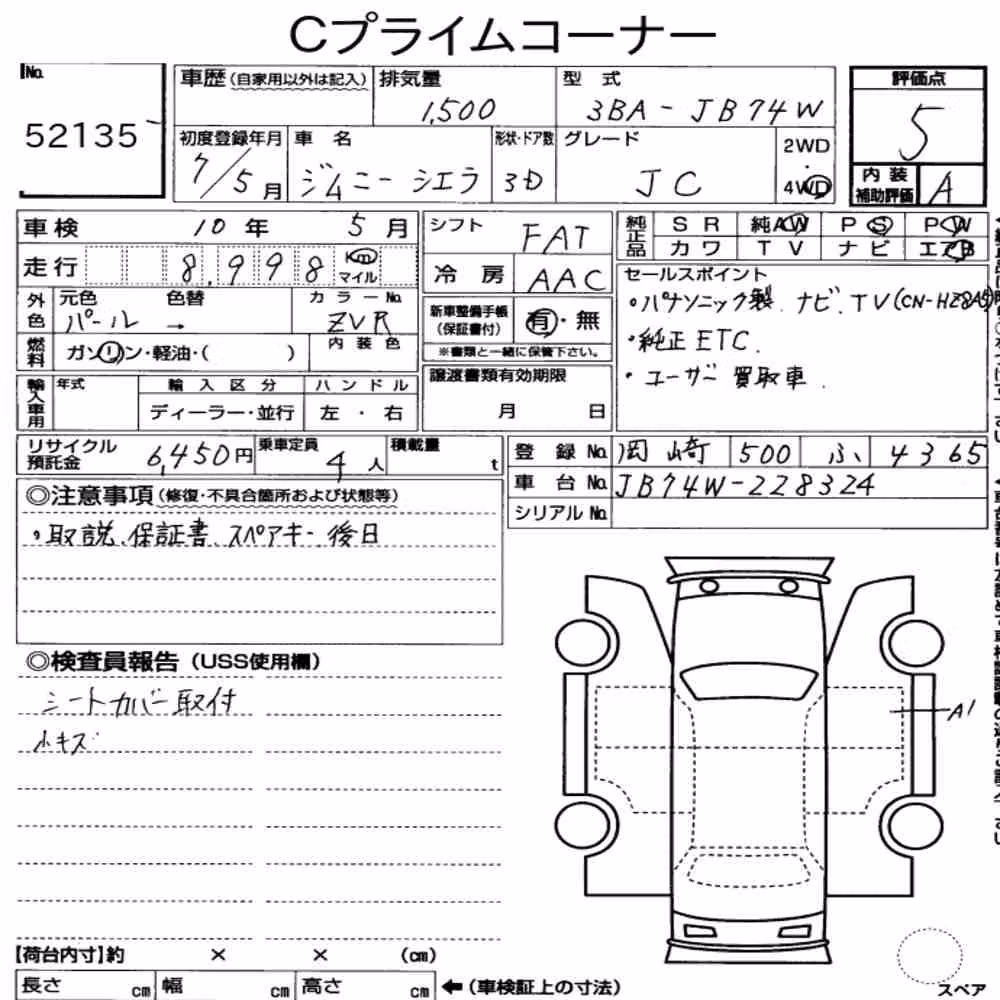 Cプライムコーナー
No. 52135
車歴(自家用以外は記入)
排気量 1,500
型式 3BA-JB74W
評価点 5
初度登録年月 7/5月
車名 ジムニーシエラ
形状・ドア数 3D
グレード JC
2WD・4WD
内装補助評価 A
車検 10年 5月
走行 8,998 Km マイル
外色 元色 パール → 色替 カラーNo. ZVR
燃料 ガソリン・軽油・( ) 内装色
輸入車用 年式 輸入区分 ディーラー・並行 ハンドル 左・右
シフト FAT
冷房 AAC
新車整備手帳(保証書付) 有・無
※書類と一緒に保管下さい。
譲渡書類有効期限 月 日
純正品 SR 純AW PS PW
カワ TV ナビ エアB
セールスポイント
・パナソニック製 ナビ.TV(CN-HZ8A5)
・純正ETC.
・ユーザー買取車.
リサイクル預託金 6,450円
乗車定員 4人
積載量 t
登録No. 岡崎 500 ふ 4365
車台No. JB74W-228324
シリアルNo.
◎注意事項(修復・不具合箇所および状態等)
・取説、保証書、スペアキー 後日
◎検査員報告(USS使用欄)
シートカバー取付
小キズ
A1
【荷台内寸】約 × × (cm)
長さ cm 幅 cm 高さ cm ←(車検証上の寸法)
スペア